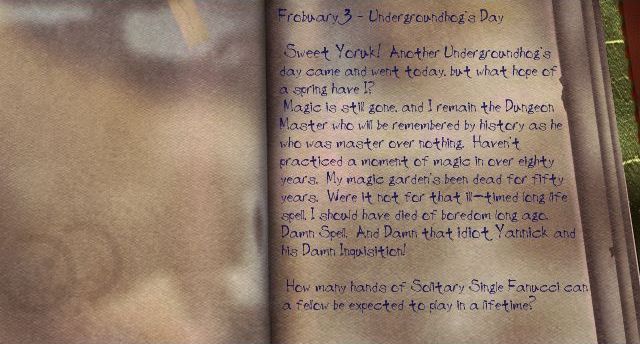 Frobuary 3 - Undergroundhog's Day
Sweet Yoruk! Another Undergroundhog's
day came and went today, but what hope of
a spring have I?
Magic is still gone, and I remain the Dungeon
Master who will be remembered by history as he
who was master over nothing. Haven't
practiced a moment of magic in over eighty
years. My magic garden's been dead for fifty
years. Were it not for that ill-timed long life
spell, I should have died of boredom long ago.
Damn Spell. And Damn that idiot Yannick and
his Damn Inquisition!
How many hands of Solitary Single Fanucci can
a fellow be expected to play in a lifetime?